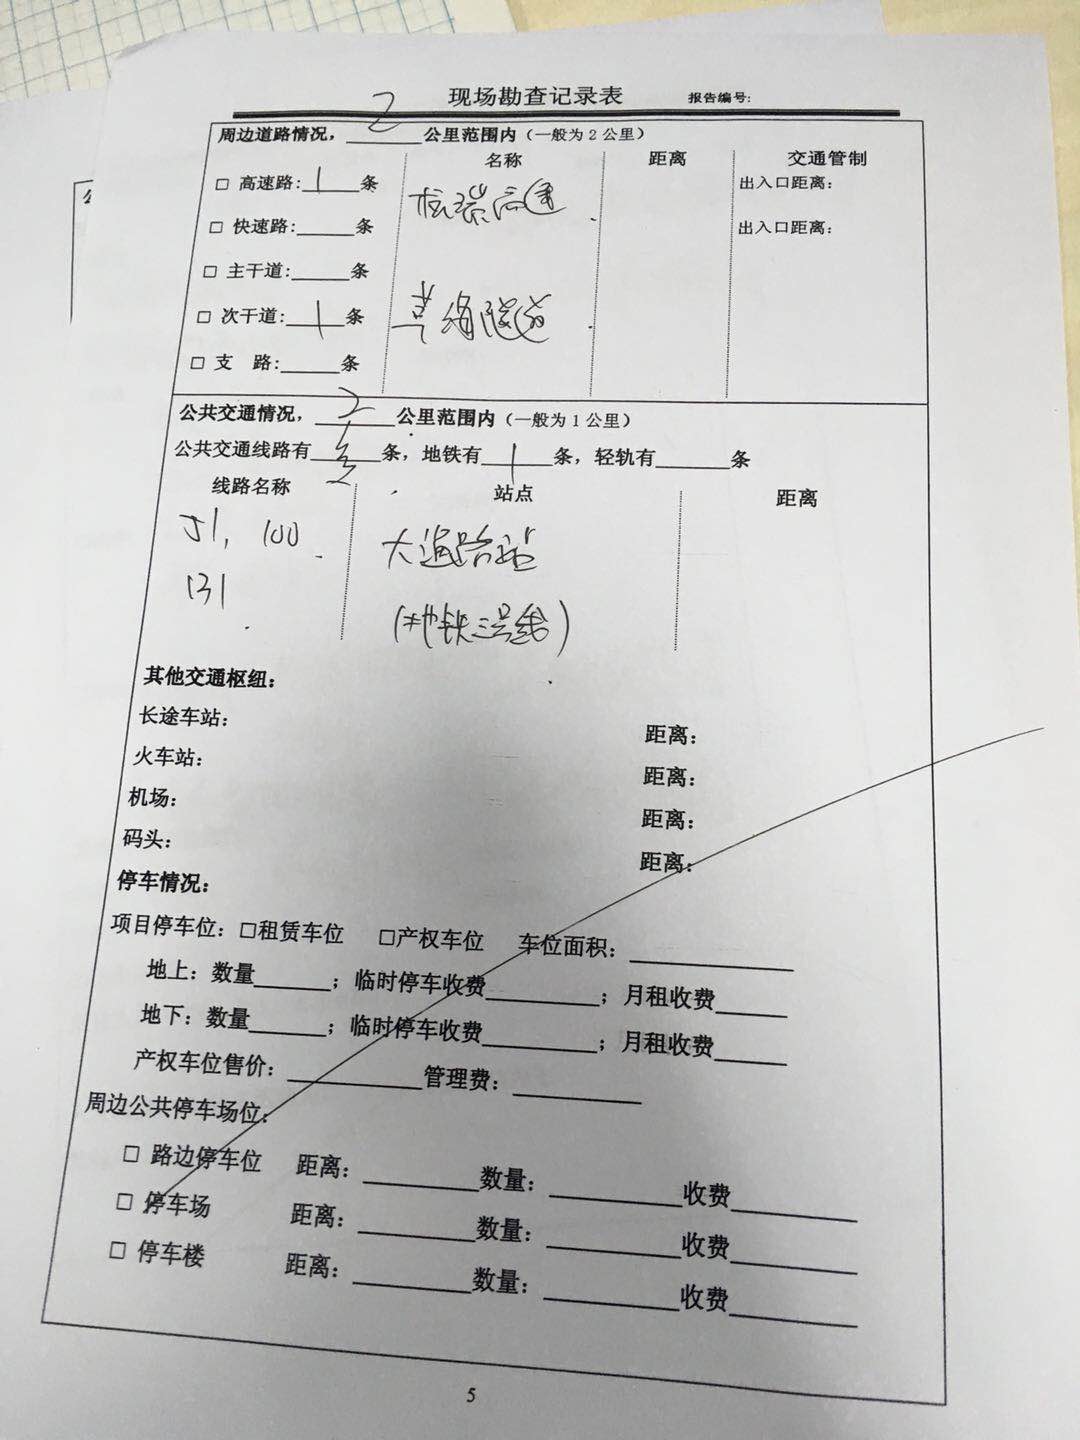 现场勘查记录表 报告编号:
周边道路情况, 2 公里范围内（一般为2公里）
名称 距离 交通管制
□ 高速路: 1 条 杭瑞高速 出入口距离:
□ 快速路: 条 出入口距离:
□ 主干道: 条
□ 次干道: 1 条 草海隧道
□ 支 路: 条
公共交通情况, 2 公里范围内（一般为1公里）
公共交通线路有 条, 地铁有 1 条, 轻轨有 条
线路名称 站点 距离
51, 100 大渔路站
131 (地铁三号线)
其他交通枢纽:
长途车站: 距离:
火车站: 距离:
机场: 距离:
码头: 距离:
停车情况:
项目停车位: □租赁车位 □产权车位 车位面积:
地上: 数量 ; 临时停车收费 ; 月租收费
地下: 数量 ; 临时停车收费 ; 月租收费
产权车位售价: 管理费:
周边公共停车场位:
□ 路边停车位 距离: 数量: 收费
□ 停车场 距离: 数量: 收费
□ 停车楼 距离: 数量: 收费
5